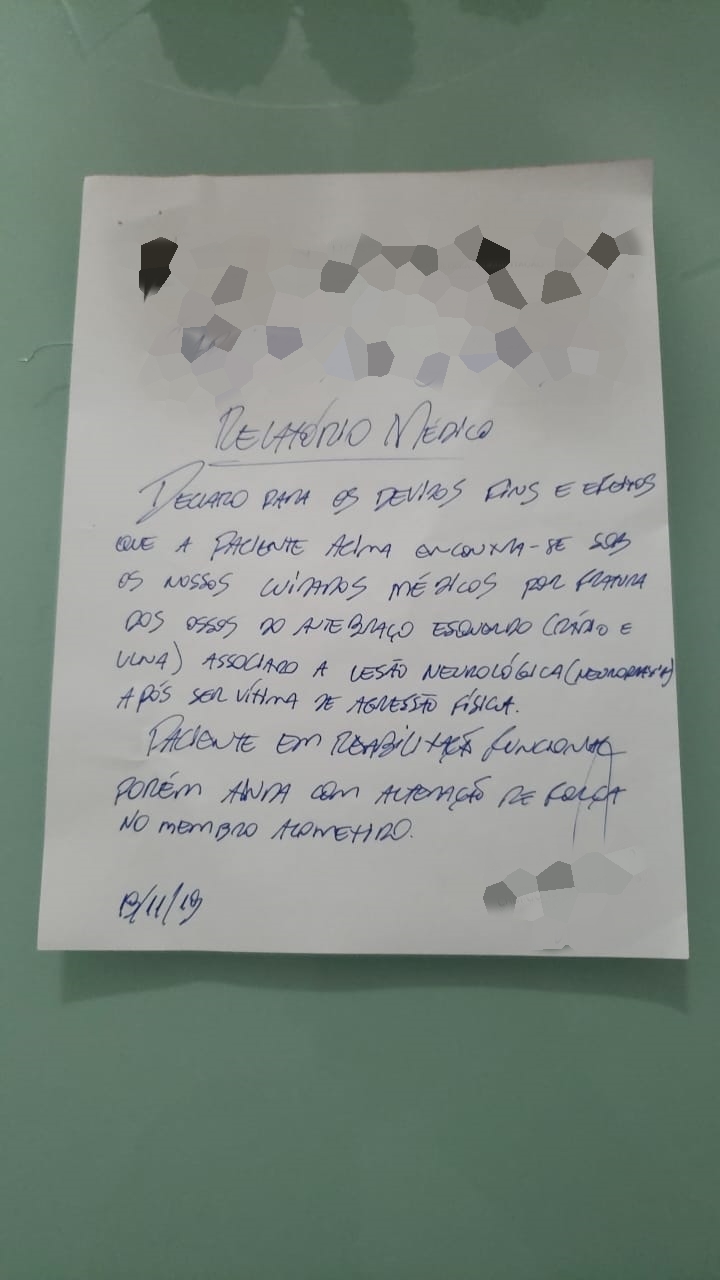 RELATÓRIO MÉDICO
DECLARO PARA OS DEVIDOS FINS E EFEITOS
QUE A PACIENTE ACIMA ENCONTRA-SE SOB
OS NOSSOS CUIDADOS MÉDICOS POR FRATURA
DOS OSSOS DO ANTEBRAÇO ESQUERDO (RÁDIO E
ULNA) ASSOCIADO A LESÃO NEUROLÓGICA (NEUROPRAXIA)
APÓS SER VÍTIMA DE AGRESSÃO FÍSICA.
PACIENTE EM REABILITAÇÃO FUNCIONAL
PORÉM AINDA COM ALTERAÇÃO DE FORÇA
NO MEMBRO ACOMETIDO.
/11/19